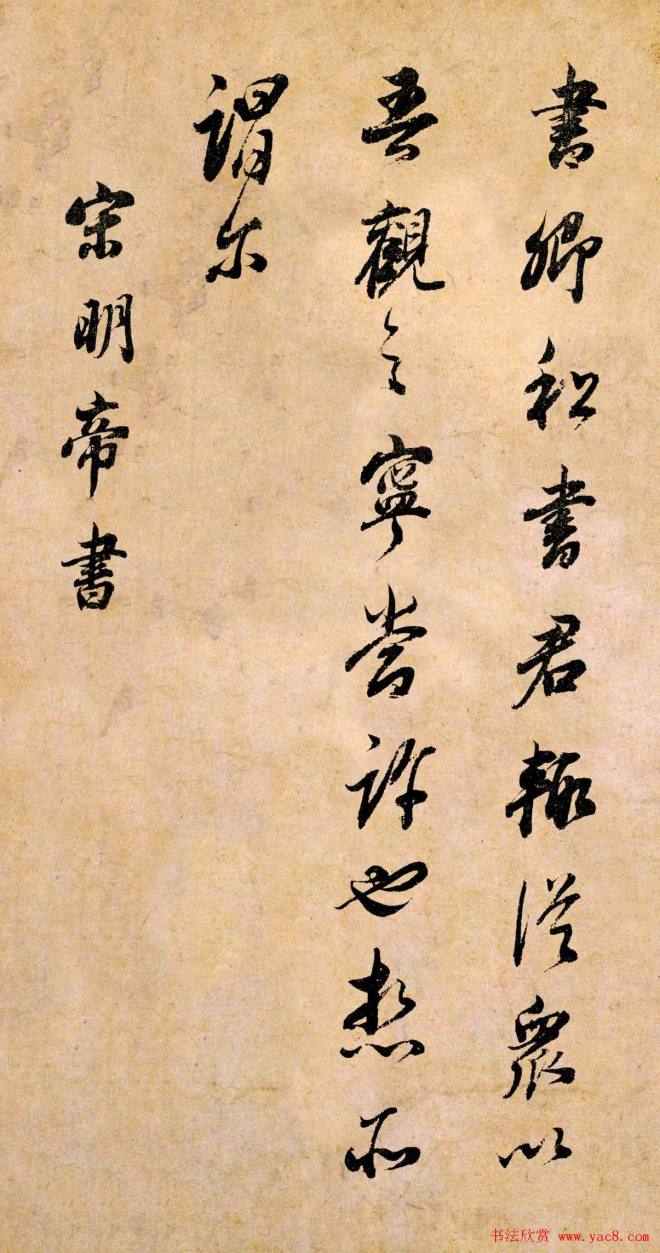 書卿和書君輒從衆以
吾觀之寧許也想所
謂尔
宋明帝書
书法欣赏 www.yac8.com